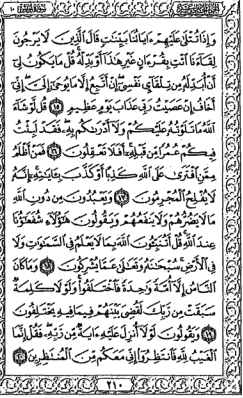 وَإِذَا تُتْلَىٰ عَلَيْهِمْ ءَايَاتُنَا بَيِّنَٰتٍ قَالَ ٱلَّذِينَ لَا يَرْجُونَ
لِقَآءَنَا ٱئْتِ بِقُرْءَانٍ غَيْرِ هَٰذَآ أَوْ بَدِّلْهُ قُلْ مَا يَكُونُ لِىٓ
أَنْ أُبَدِّلَهُۥ مِن تِلْقَآئِ نَفْسِىٓ إِنْ أَتَّبِعُ إِلَّا مَا يُوحَىٰٓ إِلَىَّ إِنِّىٓ
أَخَافُ إِنْ عَصَيْتُ رَبِّى عَذَابَ يَوْمٍ عَظِيمٍ ١٥ قُل لَّوْ شَآءَ
ٱللَّهُ مَا تَلَوْتُهُۥ عَلَيْكُمْ وَلَآ أَدْرَىٰكُم بِهِۦ فَقَدْ لَبِثْتُ
فِيكُمْ عُمُرًا مِّن قَبْلِهِۦٓ أَفَلَا تَعْقِلُونَ ١٦ فَمَنْ أَظْلَمُ
مِمَّنِ ٱفْتَرَىٰ عَلَى ٱللَّهِ كَذِبًا أَوْ كَذَّبَ بِـَٔايَٰتِهِۦٓ إِنَّهُۥ
لَا يُفْلِحُ ٱلْمُجْرِمُونَ ١٧ وَيَعْبُدُونَ مِن دُونِ ٱللَّهِ
مَا لَا يَضُرُّهُمْ وَلَا يَنفَعُهُمْ وَيَقُولُونَ هَٰٓؤُلَآءِ شُفَعَٰٓؤُنَا
عِندَ ٱللَّهِ قُلْ أَتُنَبِّـُٔونَ ٱللَّهَ بِمَا لَا يَعْلَمُ فِى ٱلسَّمَٰوَٰتِ وَلَا
فِى ٱلْأَرْضِ سُبْحَٰنَهُۥ وَتَعَٰلَىٰ عَمَّا يُشْرِكُونَ ١٨ وَمَا كَانَ
ٱلنَّاسُ إِلَّآ أُمَّةً وَٰحِدَةً فَٱخْتَلَفُوا۟ وَلَوْلَا كَلِمَةٌ
سَبَقَتْ مِن رَّبِّكَ لَقُضِىَ بَيْنَهُمْ فِيمَا فِيهِ يَخْتَلِفُونَ
١٩ وَيَقُولُونَ لَوْلَآ أُنزِلَ عَلَيْهِ ءَايَةٌ مِّن رَّبِّهِۦ فَقُلْ إِنَّمَا
ٱلْغَيْبُ لِلَّهِ فَٱنتَظِرُوٓا۟ إِنِّى مَعَكُم مِّنَ ٱلْمُنتَظِرِينَ ٢٠
٢١٠